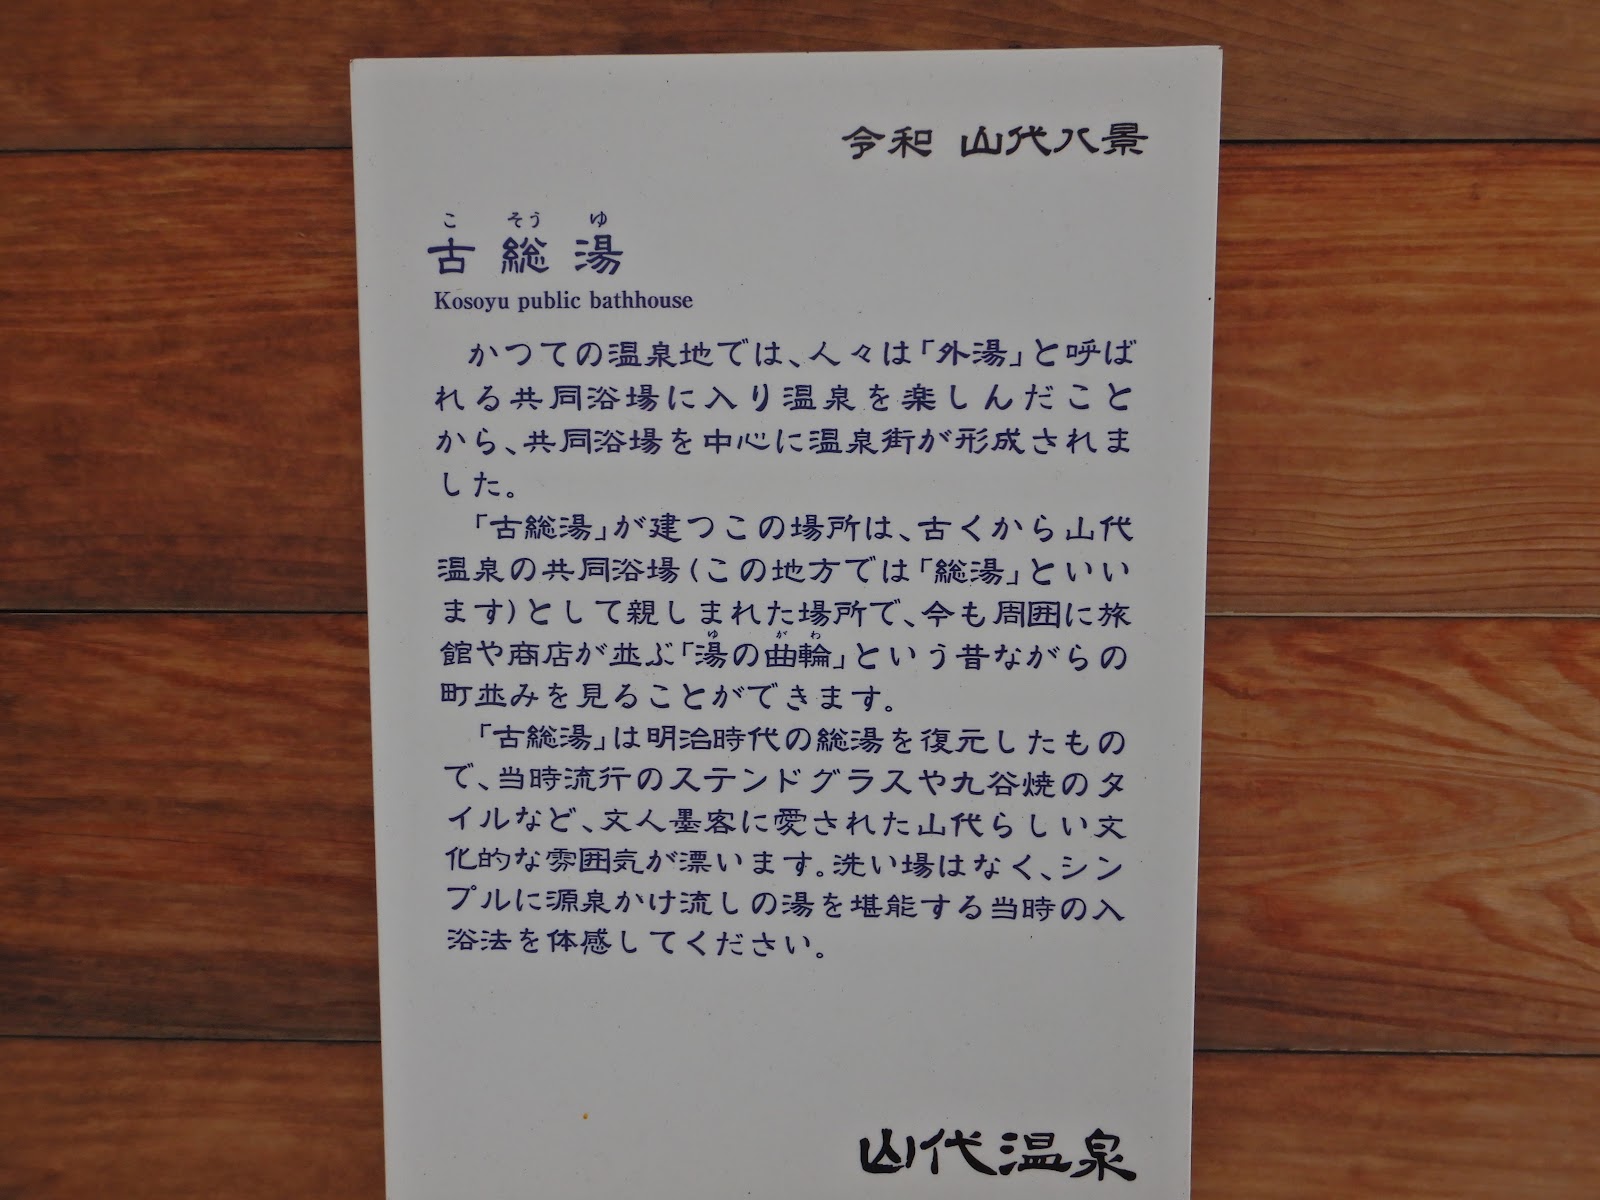 令和 山代八景
こ そう ゆ
古総湯
Kosoyu public bathhouse
かつての温泉地では、人々は「外湯」と呼ば
れる共同浴場に入り温泉を楽しんだこと
から、共同浴場を中心に温泉街が形成されま
した。
「古総湯」が建つこの場所は、古くから山代
温泉の共同浴場(この地方では「総湯」といい
ます)として親しまれた場所で、今も周囲に旅
ゆ が わ
館や商店が並ぶ「湯の曲輪」という昔ながらの
町並みを見ることができます。
「古総湯」は明治時代の総湯を復元したもの
で、当時流行のステンドグラスや九谷焼のタ
イルなど、文人墨客に愛された山代らしい文
化的な雰囲気が漂います。洗い場はなく、シン
プルに源泉かけ流しの湯を堪能する当時の入
浴法を体感してください。
山代温泉